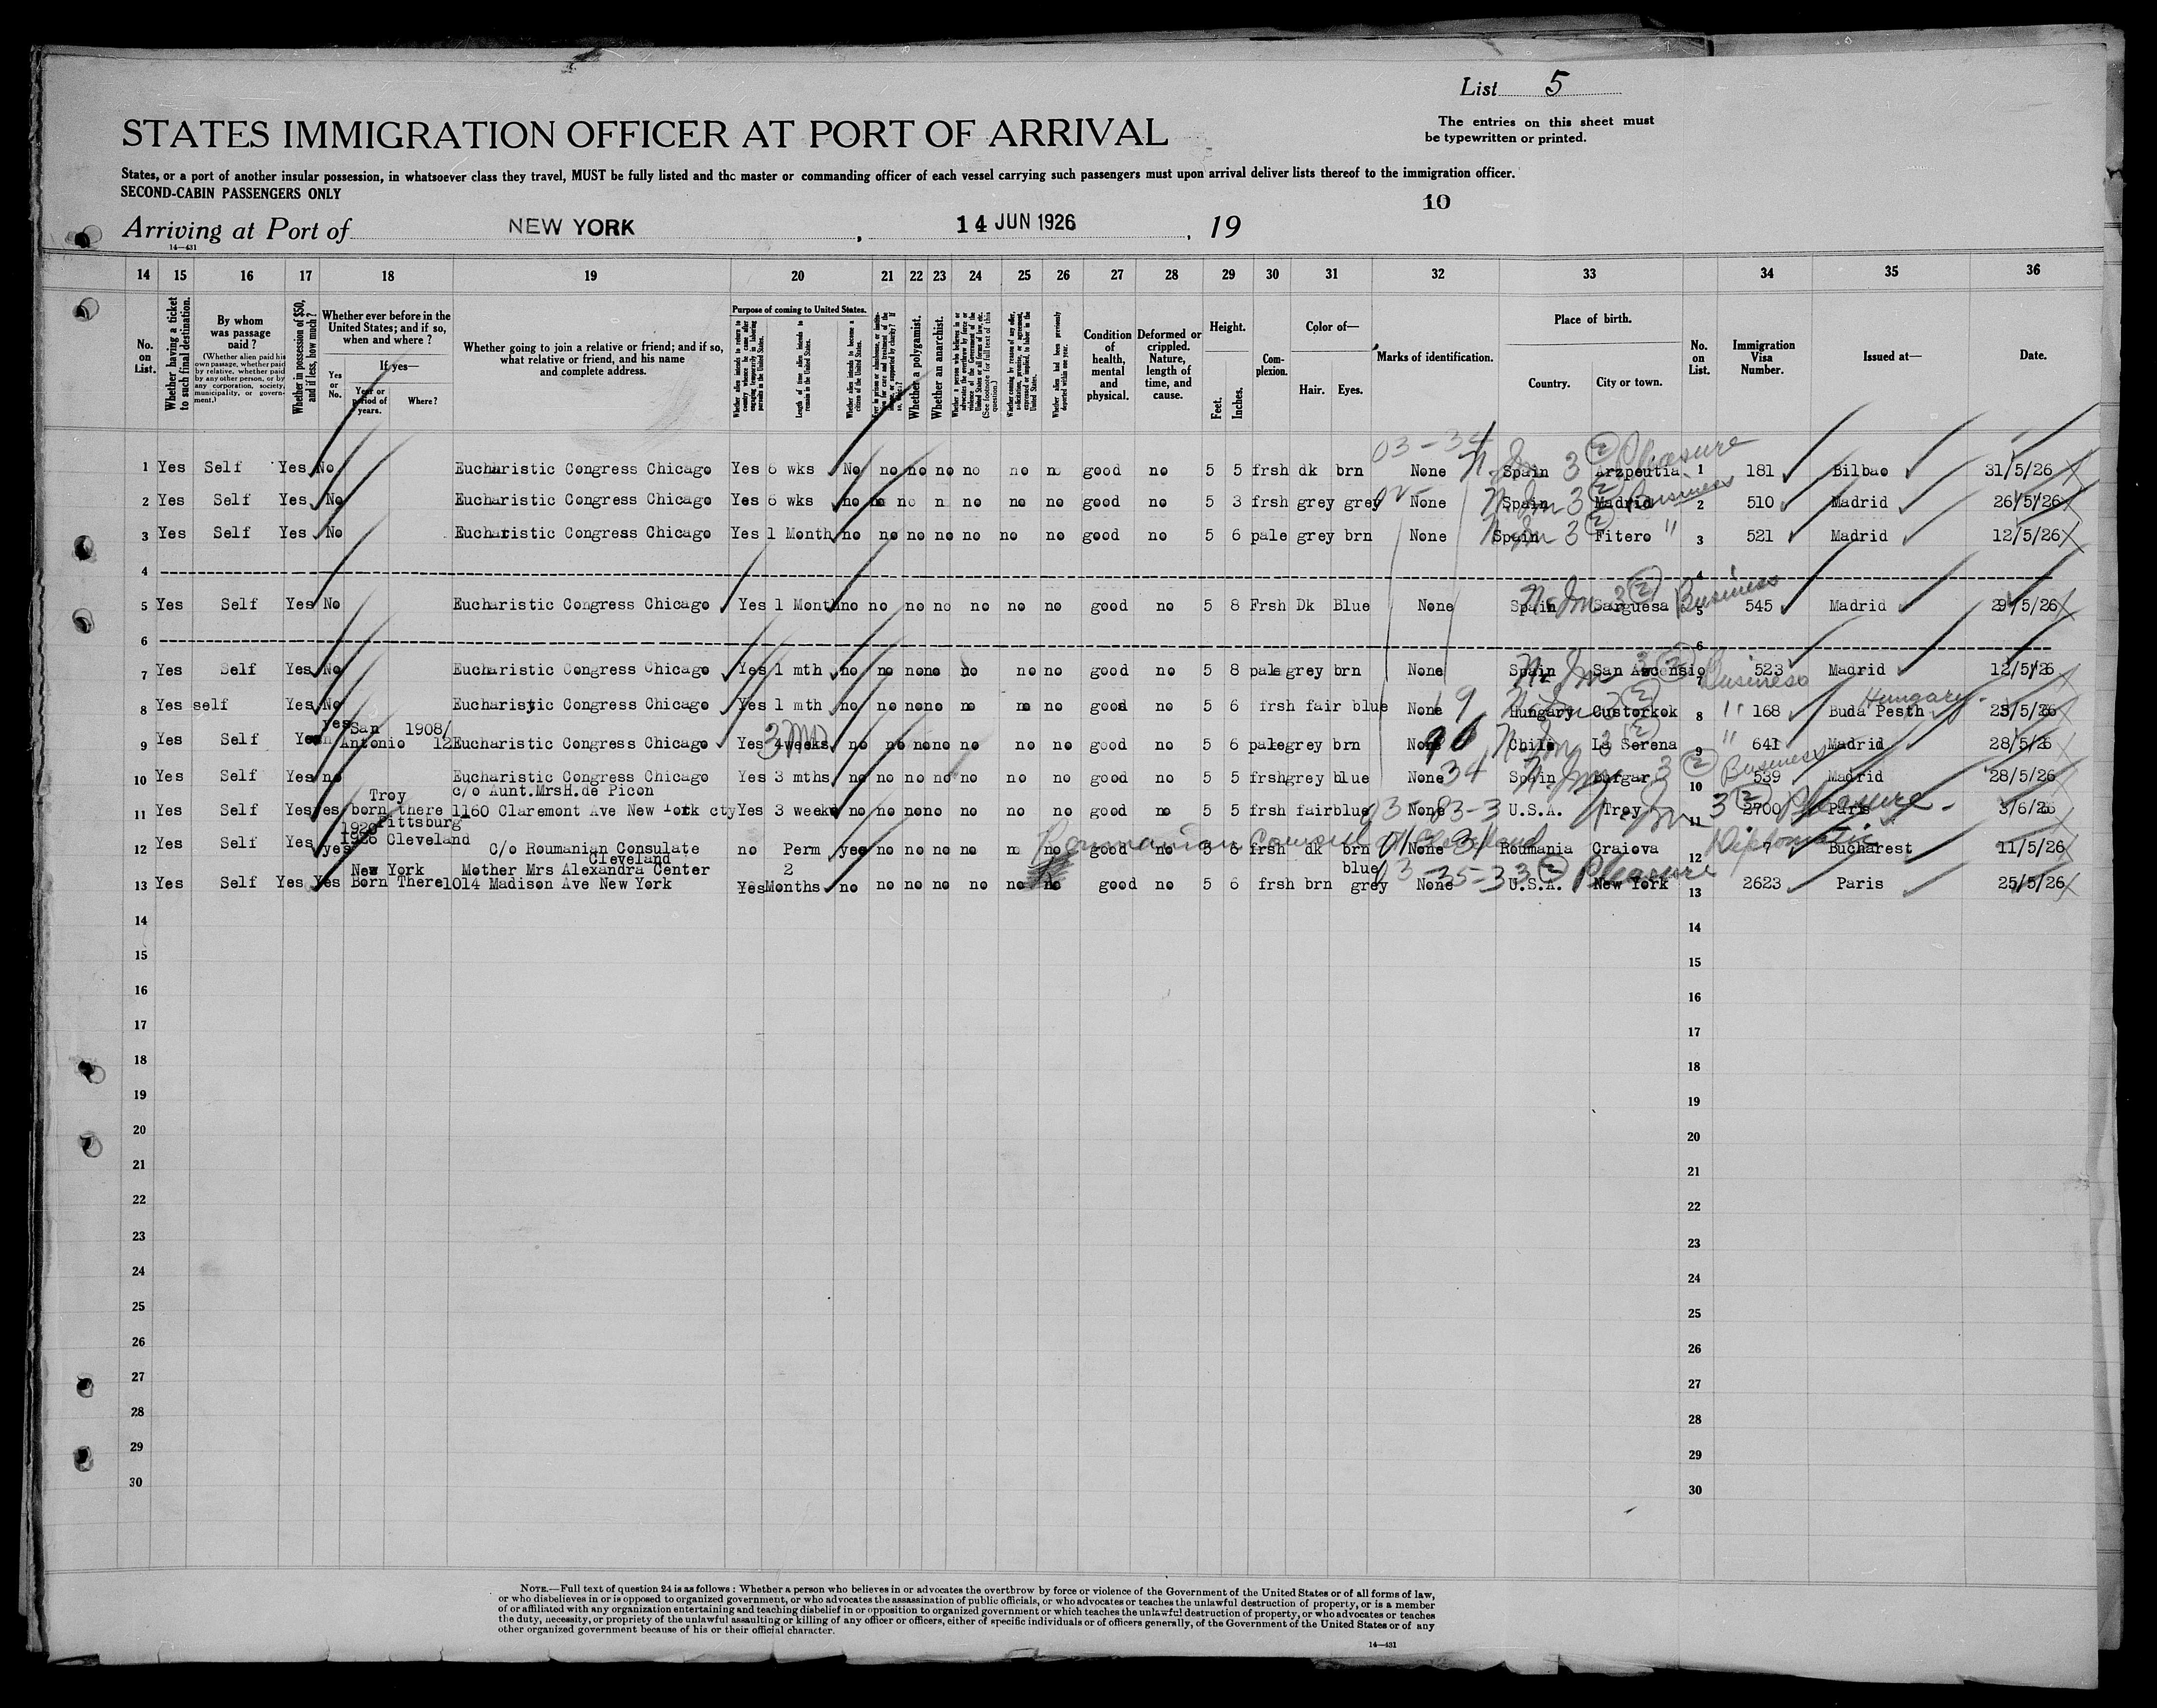 List 5
The entries on this sheet must
be typewritten or printed.
STATES IMMIGRATION OFFICER AT PORT OF ARRIVAL
States, or a port of another insular possession, in whatsoever class they travel, MUST be fully listed and the master or commanding officer of each vessel carrying such passengers must upon arrival deliver lists thereof to the immigration officer.
SECOND-CABIN PASSENGERS ONLY
10
Arriving at Port of NEW YORK, 14 JUN 1926, 19
14—431
14 15 16 17 18 19 20 21 22 23 24 25 26 27 28 29 30 31 32 33 34 35 36
No. on List.
Whether having a ticket to such final destination.
By whom was passage paid?
(Whether alien paid his own passage, whether paid by relative, whether paid by any other person, or by any corporation, society, municipality, or government.)
Whether in possession of $50, and if less, how much?
Whether ever before in the United States; and if so, when and where?
If yes—
Yes or No.
Year or period of years.
Where?
Whether going to join a relative or friend; and if so, what relative or friend, and his name and complete address.
Purpose of coming to United States.
Whether alien intends to return to country whence he came after engaging temporarily in laboring pursuits in the United States.
Length of time alien intends to remain in the United States.
Whether alien intends to become a citizen of the United States.
Whether a polygamist.
Whether an anarchist.
Whether alien had been previously deported within one year.
Condition of health, mental and physical.
Deformed or crippled. Nature, length of time, and cause.
Height.
Feet.
Inches.
Complexion.
Color of—
Hair.
Eyes.
Marks of identification.
Place of birth.
Country.
City or town.
No. on List.
Immigration Visa Number.
Issued at—
Date.
03-34 Pleasure
1 Yes Self Yes No Eucharistic Congress Chicago Yes 6 wks No no no no no no no good no 5 5 frsh dk brn None Spain Arzpeutia 1 181 Bilbao 31/5/26
Business
2 Yes Self Yes No Eucharistic Congress Chicago Yes 6 wks no no no n no no no good no 5 3 frsh grey grey None Spain Madrid 2 510 Madrid 26/5/26
3 Yes Self Yes No Eucharistic Congress Chicago Yes 1 Month no no no no no no no good no 5 6 pale grey brn None Spain Fitero " 3 521 Madrid 12/5/26
4 4
5 Yes Self Yes No Eucharistic Congress Chicago Yes 1 Month no no no no no no no good no 5 8 Frsh Dk Blue None Spain Sarguesa Business 5 545 Madrid 29/5/26
6 6
7 Yes Self Yes No Eucharistic Congress Chicago Yes 1 mth no no no no no no no good no 5 8 pale grey brn None Spain San Ascensio 7 523 Madrid 12/5/26
Business
8 Yes self Yes No Eucharistic Congress Chicago Yes 1 mth no no no no no no no good no 5 6 frsh fair blue None 19 Hungary Custorkok 8 " 168 Buda Pesth Hungary 25/5/26
yes San 1908/
3 mo
9 Yes Self Yes Antonio 12 Eucharistic Congress Chicago Yes 4weeks no no no no no no no good no 5 6 pale grey brn None Chile La Serena 9 " 641 Madrid 28/5/26
10 Yes Self Yes no Eucharistic Congress Chicago Yes 3 mths no no no no no no no good no 5 5 frsh grey blue None 34 Spain Bufgar Business 10 539 Madrid 28/5/26
Troy c/o Aunt.MrsH.de Picon
11 Yes Self Yes yes born there 1160 Claremont Ave New York cty Yes 3 weeks no no no no no no no good no 5 5 frsh fair blue None 03-3 U.S.A. Troy 11 2700 Paris Pleasure 3/6/26
1920 Pittsburg
1926 Cleveland
Roumanian Consul at Cleveland Diplomatic
12 Yes Self Yes yes C/o Roumanian Consulate no Perm yes no no no no no no good no 5 6 frsh dk brn None 31 Roumania Craiova 12 7 Bucharest 11/5/26
Cleveland
New York Mother Mrs Alexandra Center 2 blue 03-35-33 Pleasure
13 Yes Self Yes Yes Born There 1014 Madison Ave New York Yes Months no no no no no no no good no 5 6 frsh brn grey None U.S.A. New York 13 2623 Paris 25/5/26
14 14
15 15
16 16
17 17
18 18
19 19
20 20
21 21
22 22
23 23
24 24
25 25
26 26
27 27
28 28
29 29
30 30
NOTE.—Full text of question 24 is as follows: Whether a person who believes in or advocates the overthrow by force or violence of the Government of the United States or of all forms of law,
or who disbelieves in or is opposed to organized government, or who advocates the assassination of public officials, or who advocates or teaches the unlawful destruction of property, or is a member
of or affiliated with any organization entertaining and teaching disbelief in or opposition to organized government or which teaches the unlawful destruction of property, or who advocates or teaches
the duty, necessity, or propriety of the unlawful assaulting or killing of any officer or officers, either of specific individuals or of officers generally, of the Government of the United States or of any
other organized government because of his or their official character.
14—431